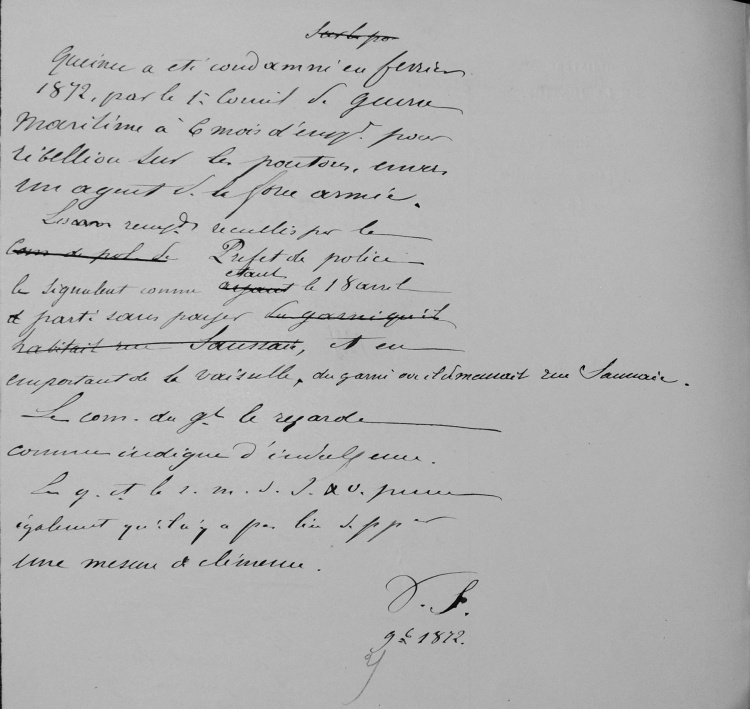 Sur le po
a été condamné en février
1872, par le 1er Conseil de guerre
maritime à 6 mois d'empt. pour
rébellion sur les pontons, envers
un agent de la force armée.
Les rensgts recueillis par le
Com. de pol. de Préfet de police
le signalent comme ayant étant le 18 avril
parti sans payer le garni qu'il
habitait rue Saussaie, et en
emportant de la vaisselle, du garni où il demeurait rue Saunaie.
Le com. du gt le regarde
comme indigne d'indulgence.
Le g. et le r. m. d. J. pense
également qu'il n'y a pas lieu de ppser
une mesure de clémence.
9bre 1872.